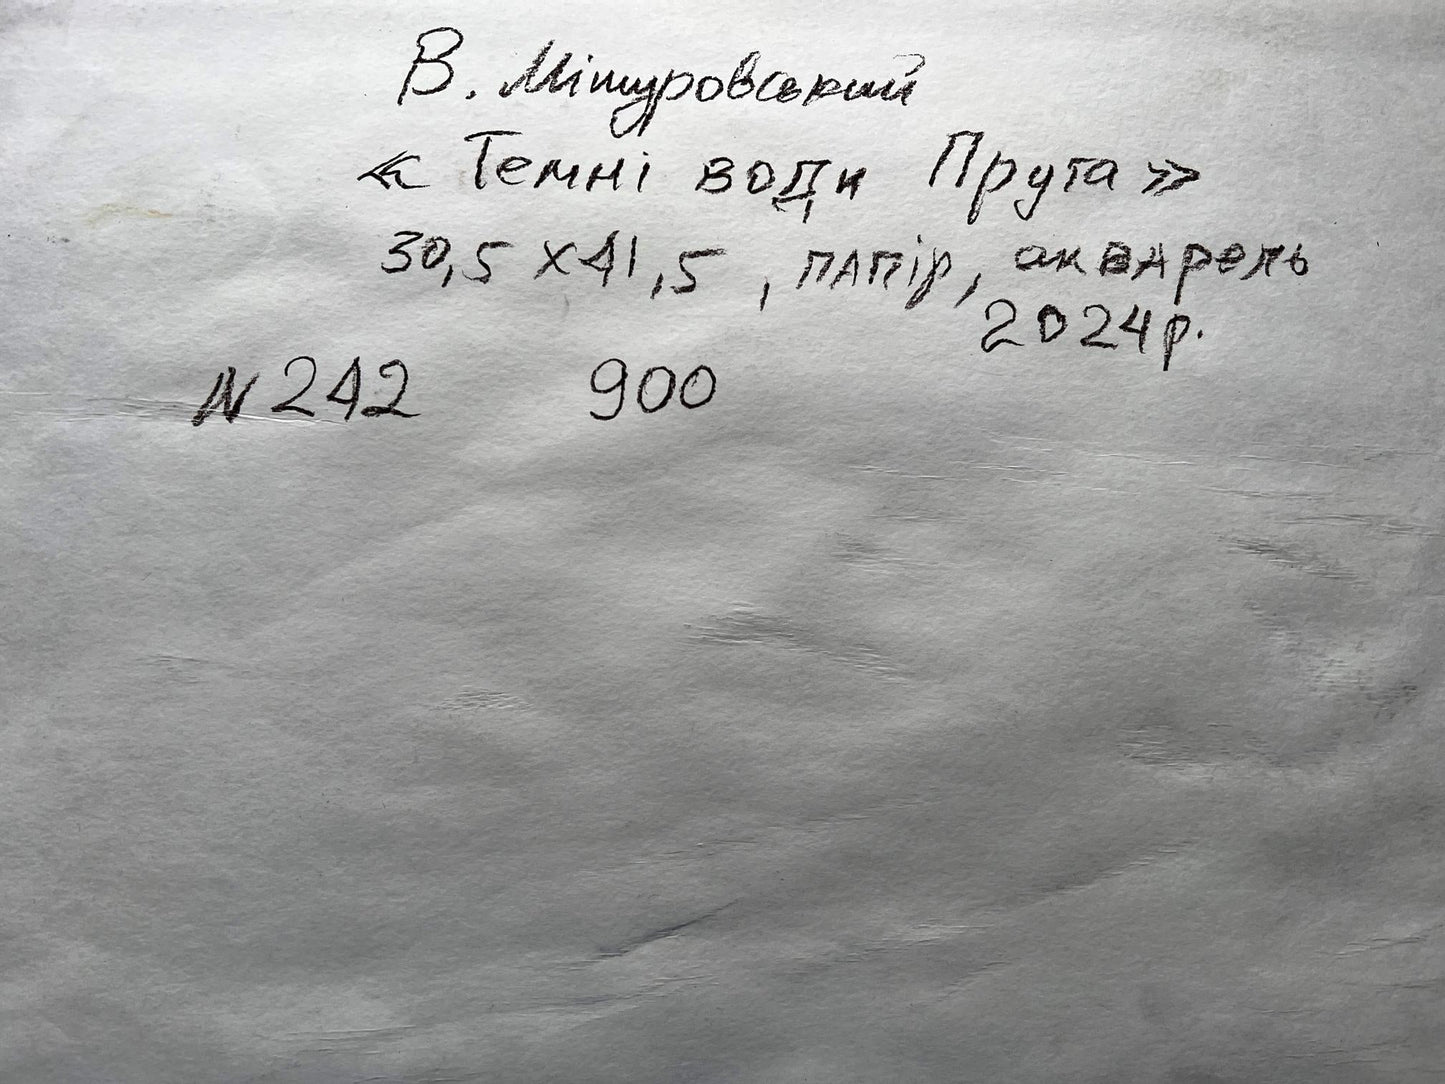 В. Мітуровський
« Темні води Прута »
30,5 х 41,5, папір, акварель
2024р.
N 242 900